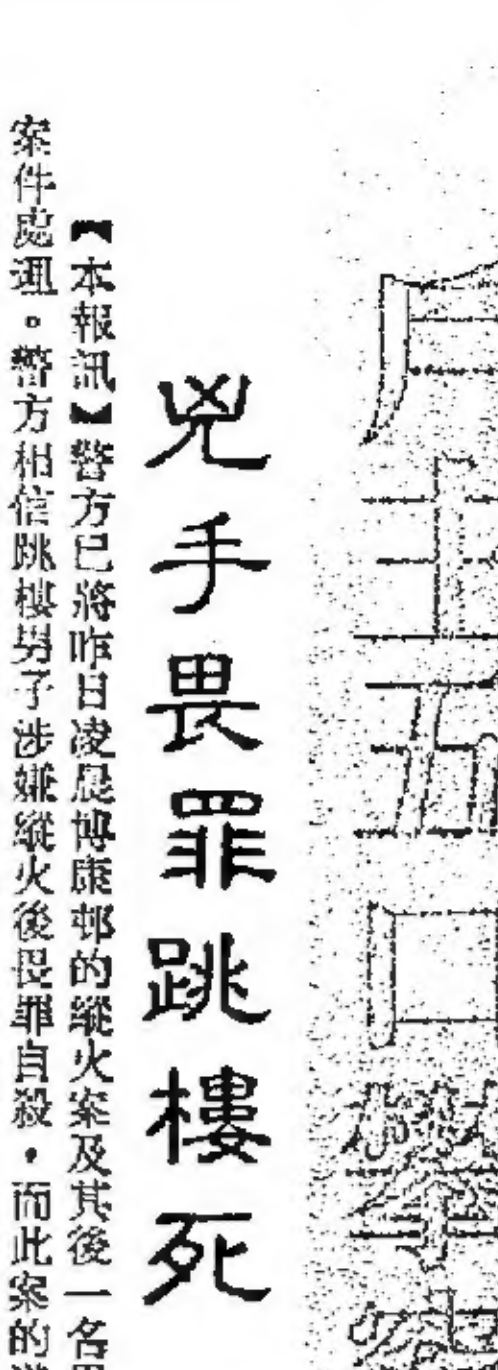 五口
兇手畏罪跳樓死
【本報訊】警方已將昨日凌晨博康邨的縱火案及其後一名男
案件處理。警方相信跳樓男子涉嫌縱火後畏罪自殺，而此案的